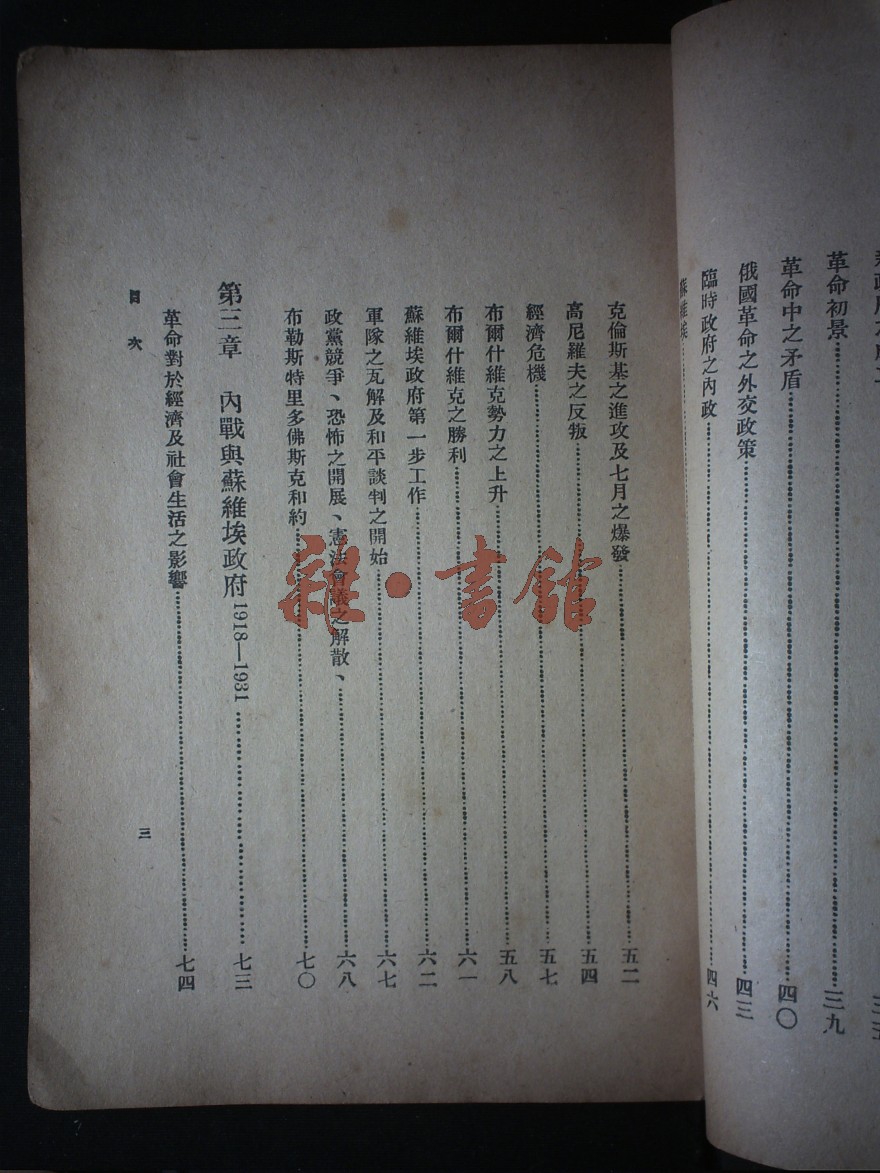 革命初景……三九
革命中之矛盾……四〇
俄國革命之外交政策……四三
臨時政府之內政……四六
蘇維埃……
克倫斯基之進攻及七月之爆發……五二
高尼羅夫之反叛……五四
經濟危機……五七
布爾什維克勢力之上升……五八
布爾什維克之勝利……六一
蘇維埃政府第一步工作……六二
軍隊之瓦解及和平談判之開始……六七
政黨競爭、恐怖之開展、憲法會議之解散、……六八
布勒斯特里多佛斯克和約……七〇
第三章 內戰與蘇維埃政府1918—1931……七三
革命對於經濟及社會生活之影響……七四
目次 三
雜·書館